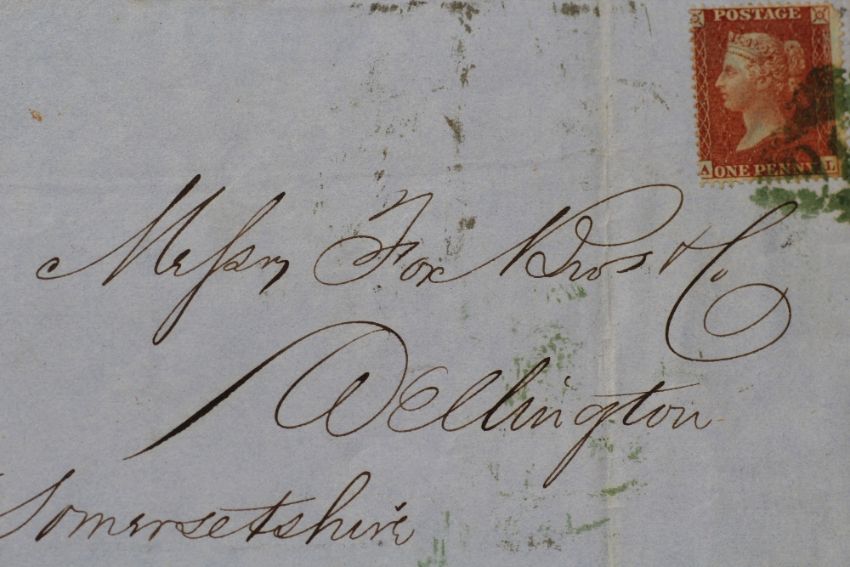 POSTAGE
A ONE PENNY L
Messrs Fox Bros & Co.
Wellington
Somersetshire